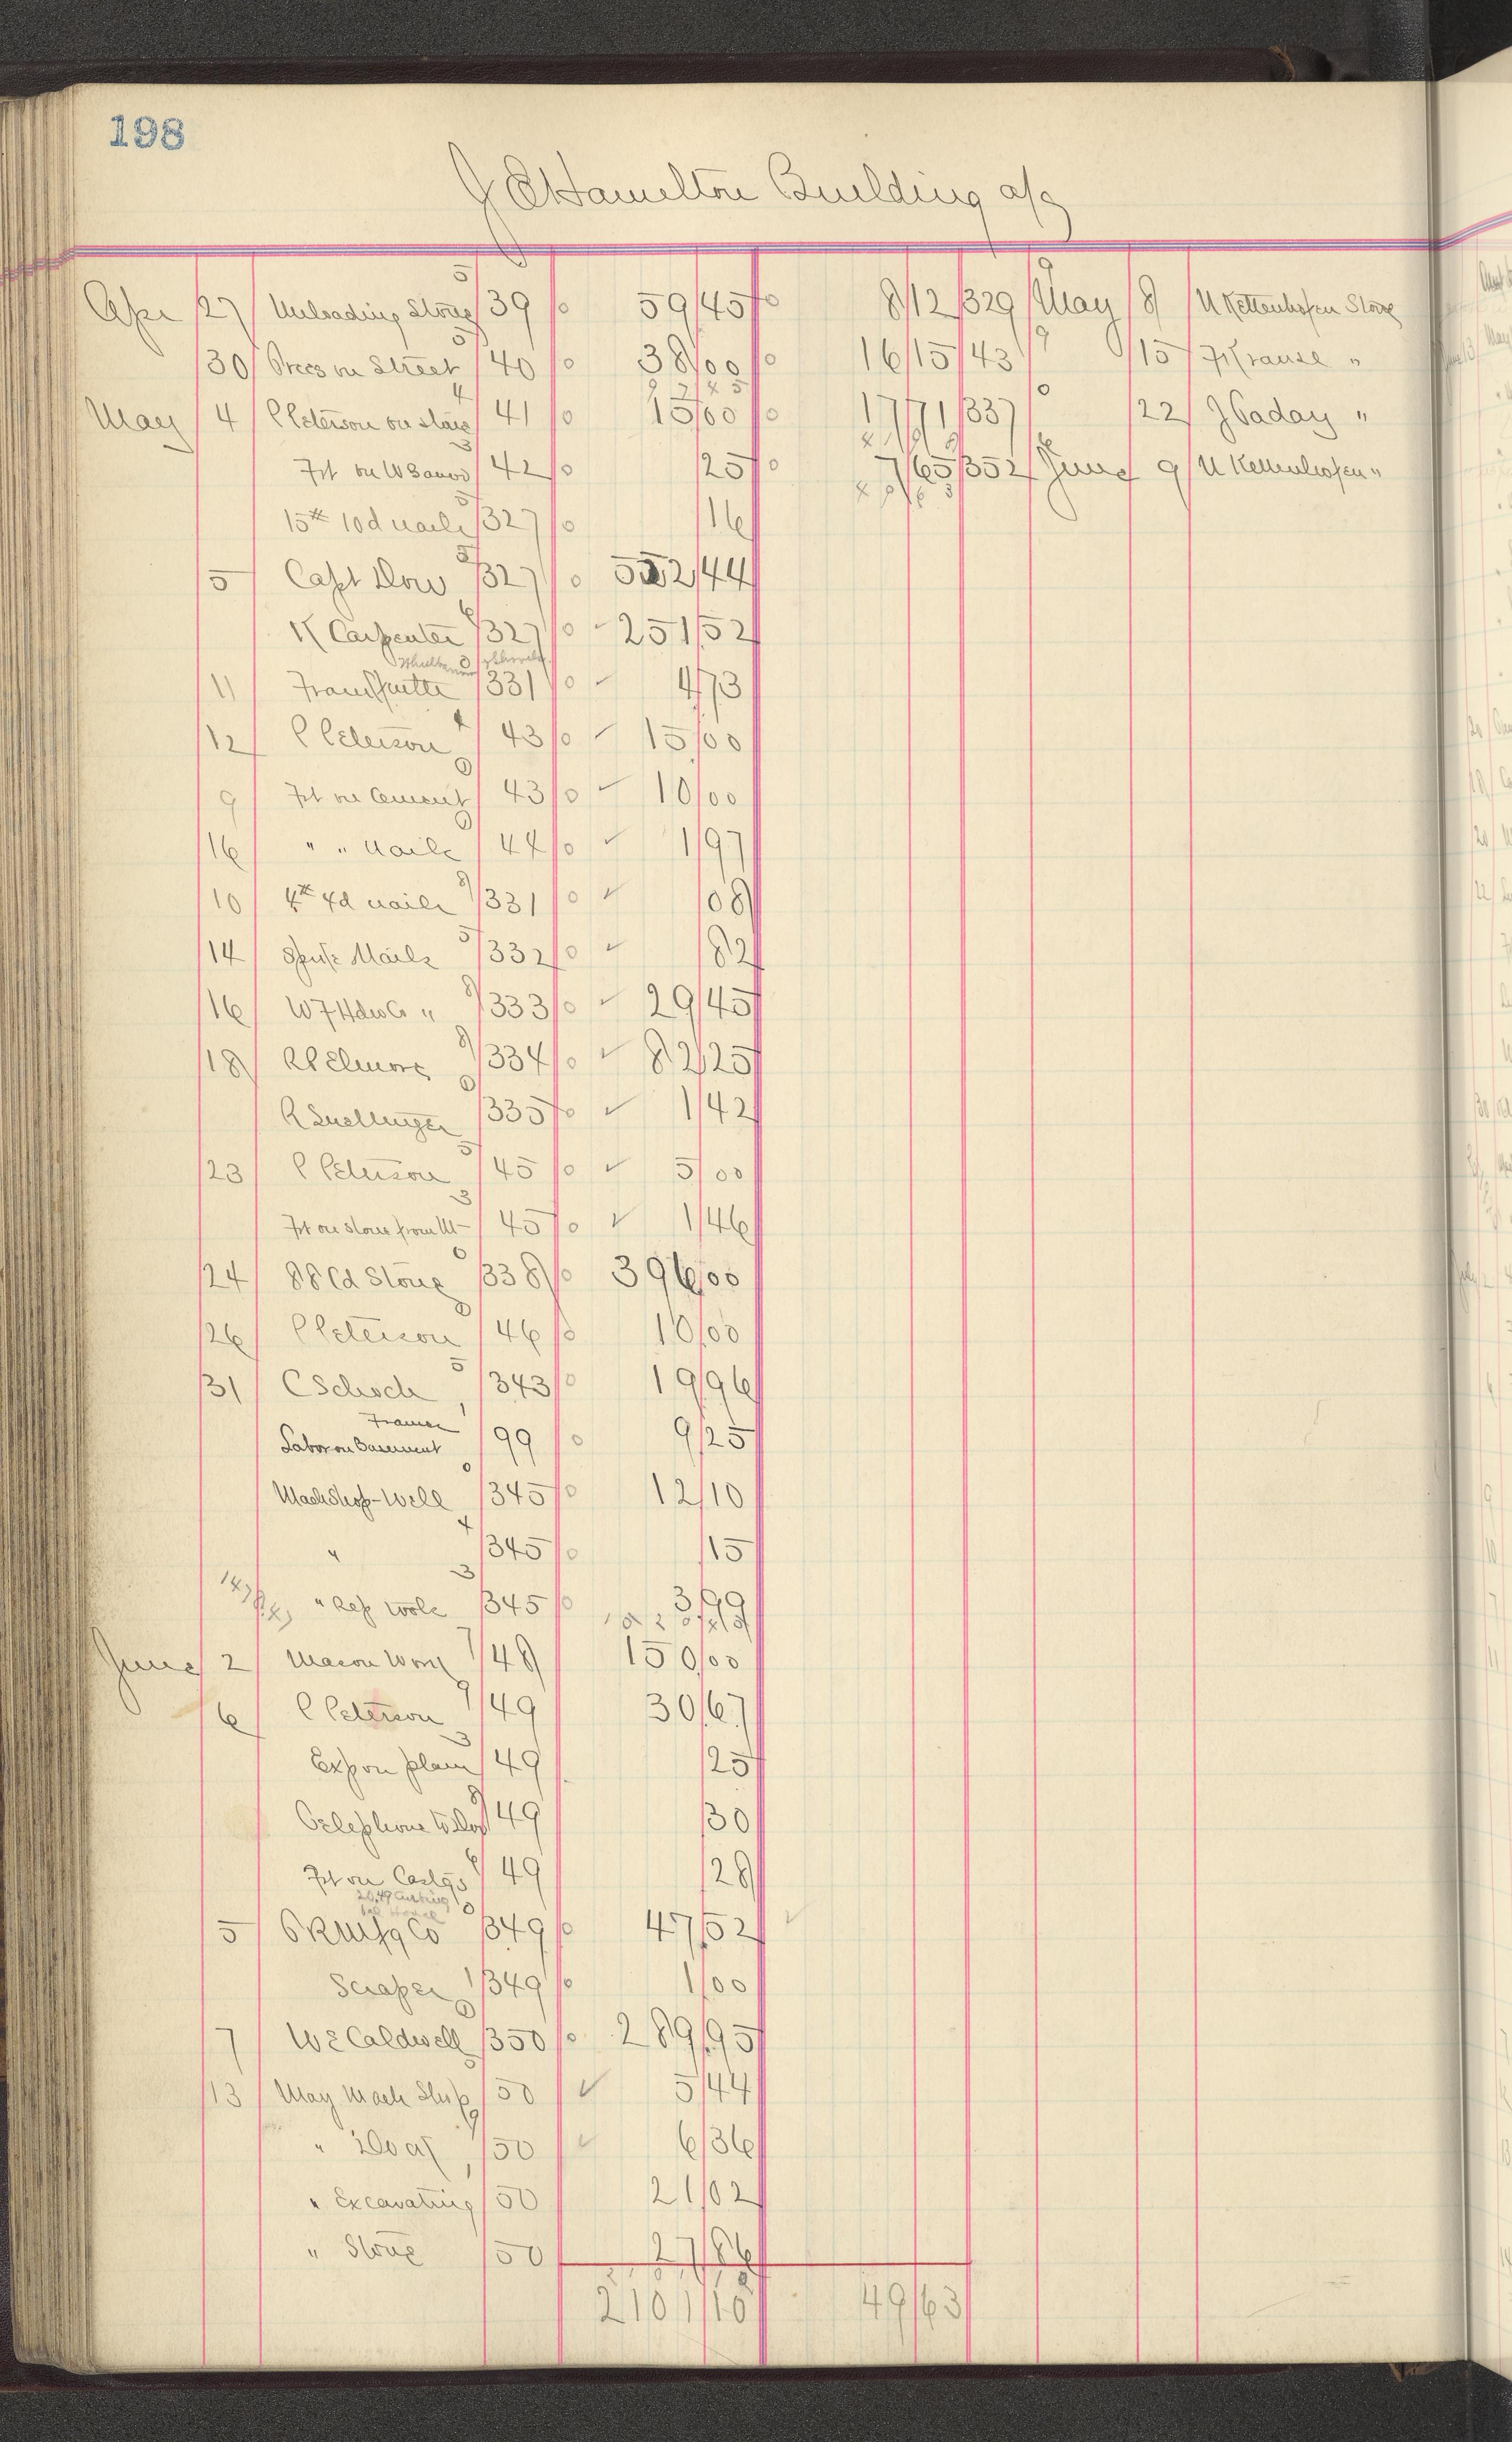 198
J E Hamilton Building a/c
Apr 27 Unloading Stone 39 59/45 8/12 329 May 8 M Kettenhofen Stone
30 Trees on Street 40 38/00 16/15 43 15 F Krause "
May 4 P Peterson on stairs 41 15/00 17/71 337 22 J Caday "
Frt on W Bands 42 25 7/65 352 June 9 M Kettenhofen "
15# 10d nails 327 16
5 Capt Dow 327 552/44
K Carpenter 327 251/52
11 331 4/73
12 P Peterson 43 15/00
9 Frt on Cement 43 10/00
16 " " Nails 44 1/97
10 4# 4d nails 331 08
14 Nails 332 82
16 W F Hdw Co " 333 29/45
18 R P Elmore 334 82/25
R Suellinger 335 1/42
23 P Peterson 45 5/00
Frt on Stone from M 45 1/46
24 88 Cd Stone 338 396/00
26 P Peterson 46 10/00
31 C Schoch 343 19/96
Frames
Labor on Basement 99 9/25
Mach Shop - Well 345 12/10
" 345 15
" Rep Tools 345 3/99
June 2 Mason Work 48 150/00
6 P Peterson 49 30/67
Exp on plans 49 25
Telephone 49 30
Frt on Castgs 49 28
20.49 Curbing
5 T R Mfg Co 349 47/52
Scraper 349 1/00
7 W E Caldwell 350 289/95
13 May Mach Shop 50 5/44
" 50 6/36
" Excavating 50 21/02
" Stone 50 27/86
2101/10 49/63